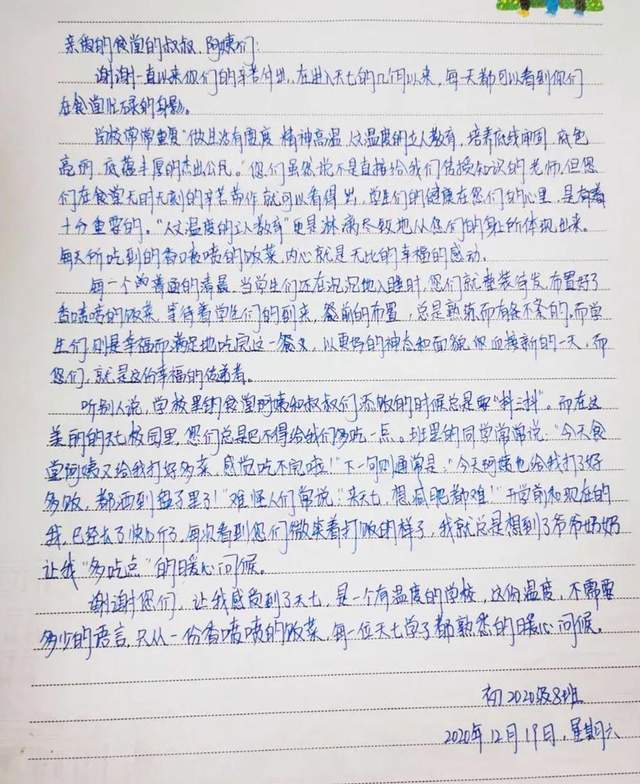 亲爱的食堂的叔叔、阿姨们:
谢谢一直以来你们的辛苦付出,在进入天七的几个月以来,每天都可以看到你们
在食堂忙碌的身影。
学校常常重复"做生活有温度 精神高温 人文温度的立人教育,培养底线牢固,底色
高明,底蕴丰厚的杰出公民。"您们虽然说不是直接给我们传授知识的老师,但您
们在食堂无时无刻的辛苦劳作就可以看得出,学生们的健康在您们的心里,是有着
十分重要的。"人文温度的立人教育"更是淋漓尽致地从您们的身上所体现出来。
每天所吃到的香喷喷的饭菜,内心就是无比的幸福的感动。
每一个普通的清晨,当学生们还在沉沉地入睡时,您们就整装待发,布置好了
香喷喷的饭菜,等待着学生们的到来,餐前的布置,总是熟练而有条不紊的,而学
生们,则是幸福而满足地吃完这一餐,以更好的神态和面貌迎接新的一天,而
您们,就是这份幸福的传递者。
听别人说,学校里的食堂阿姨和叔叔们添饭的时候总是要"抖三抖"。而在这
美丽的天七校园里,您们总是巴不得给我们多吃一点。班里的同学常常说:"今天食
堂阿姨又给我打好多菜,感觉吃不完啦!"下一句则通常是:"今天阿姨也给我打了好
多饭,都洒到盘子里了!"难怪人们常说:"来天七,想减肥都难!"开学前和现在的
我,已经长了快10斤了,每次看到您们微笑着打饭的样子,我就总是想到了爷爷奶奶
让我"多吃点"的暖心问候。
谢谢您们,让我感觉到了天七,是一个有温度的学校,这份温度,不需要
多少的语言,只从一份香喷喷的饭菜,每一位天七学子都熟悉的暖心问候。
初2020级8班
2020年12月19日,星期六